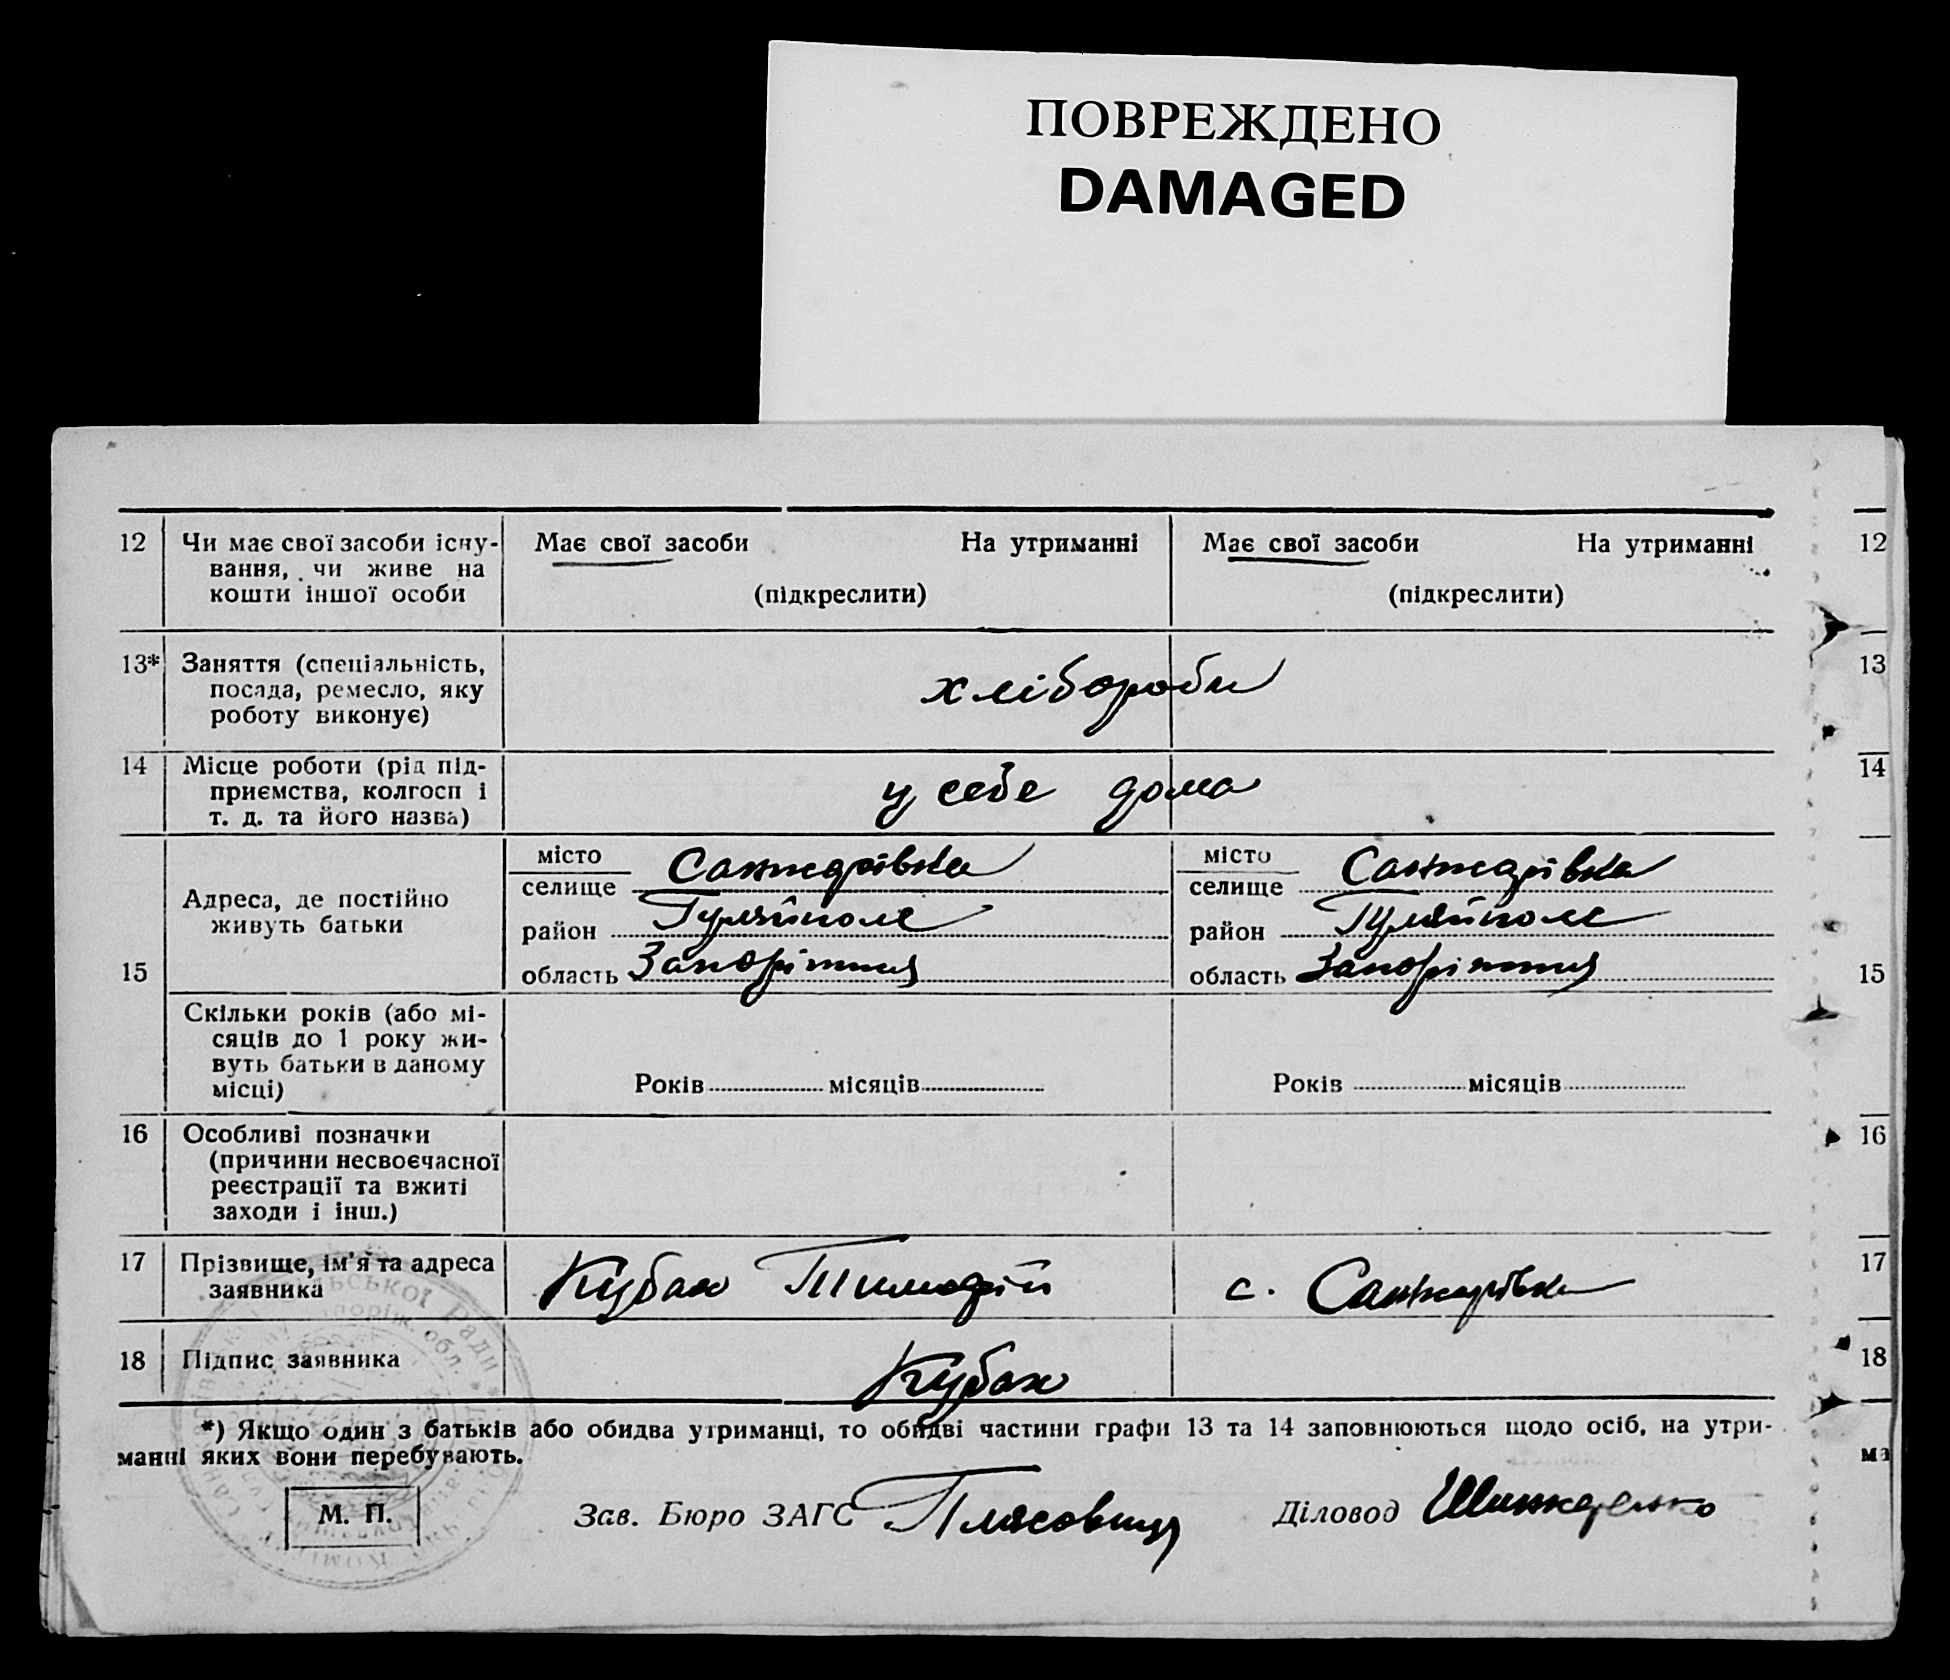 ПОВРЕЖДЕНО
DAMAGED
12 Чи має свої засоби існу- Має свої засоби На утриманні Має свої засоби На утриманні 12
вання, чи живе на
кошти іншої особи (підкреслити) (підкреслити)
13* Заняття (спеціальність, 13
посада, ремесло, яку хлібороби
роботу виконує)
14 Місце роботи (рід під- 14
приємства, колгосп і у себе дома
т. д. та його назва)
місто місто
Адреса, де постійно селище Санжарівка селище Санжарівка
живуть батьки район Гуляйполе район Гуляйполе
15 область Запоріжжя область Запоріжжя 15
Скільки років (або мі-
сяців до 1 року жи-
вуть батьки в даному
місці) Років місяців Років місяців
16 Особливі позначки 16
(причини несвоєчасної
реєстрації та вжиті
заходи і інш.)
17 Прізвище, ім'я та адреса Кубах Тимофій с. Санжарівка 17
заявника
18 Підпис заявника Кубах 18
*) Якщо один з батьків або обидва утриманці, то обидві частини графи 13 та 14 заповнюються щодо осіб, на утри-
манні яких вони перебувають. ма
М. П. Зав. Бюро ЗАГС Діловод